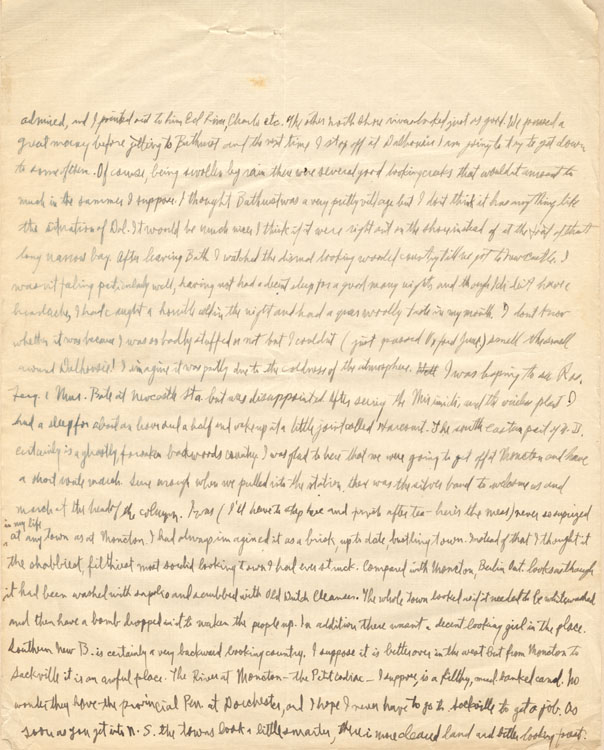 admired, and I pointed out to him Eel River, Charlo etc. The other north shore rivers looked just as good. We passed a
great many before getting to Bathurst and the next time I stop off at Dalhousie I am going to try to get down
to some of them. Of course, being swollen by rain there were several good looking creeks that wouldn't amount to
much in the summer I suppose. I thought Bathurst was a very pretty village but I don't think it has anything like
the situation of Dal. It would be much nicer I think if it were right out on the shore instead of at the foot of that
long narrow bay. After leaving Bath I watched the dismal looking wooded country till we got to Newcastle. I
wasn't feeling particularly well, having not had a decent sleep for a good many nights and though I didn't have a
headache, I had caught a horrible cold in the night and had a woolly taste in my mouth. I don't know
whether it was because I was so badly stuffed or not but I couldn't (just passed Oxford Junc) smell the smell
around Dalhousie! I imagine it was partly due to the coldness of the atmosphere. I was hoping to see Rev.
& Mrs. Bate at Newcastle Sta. but was disappointed. After seeing the Miramichi, and the wireless plant I
had a sleep for about an hour and a half and woke up at a little joint called Harcourt. The south eastern part of N.B.
certainly is a ghostly, forsaken backwoods country. I was glad to hear that we were going to get off at Moncton and have
a short route march. Sure enough when we pulled into the station, there was the silver band to welcome us and
march at the head of the column. I was (I'll have to stop here and finish after tea - here's the mess) never so surprized
in my life
at any town as at Moncton. I had always imagined it as a brisk, up to date, bustling town. Instead of that I thought it
the shabbiest, filthiest most sordid looking town I had ever struck. Compared with Moncton, Berlin Ont. looks as though
it had been washed with sapolio and scrubbed with Old Dutch Cleanser. The whole town looked as if it needed to be whitewashed
and then have a bomb dropped in it to waken the people up. In addition there wasn't a decent looking girl in the place.
Southern New B. is certainly a very backward looking country. I suppose it is better over in the west but from Moncton to
Sackville it is an awful place. The River at Moncton - the Petitcodiac - I suppose, is a filthy, mud banked canal. No
wonder they have the provincial Pen at Dorchester, and I hope I never have to go to Sackville to get a job. As
soon as you get into N.S. the towns look a little smarter, there is more cleared land and better looking forest.